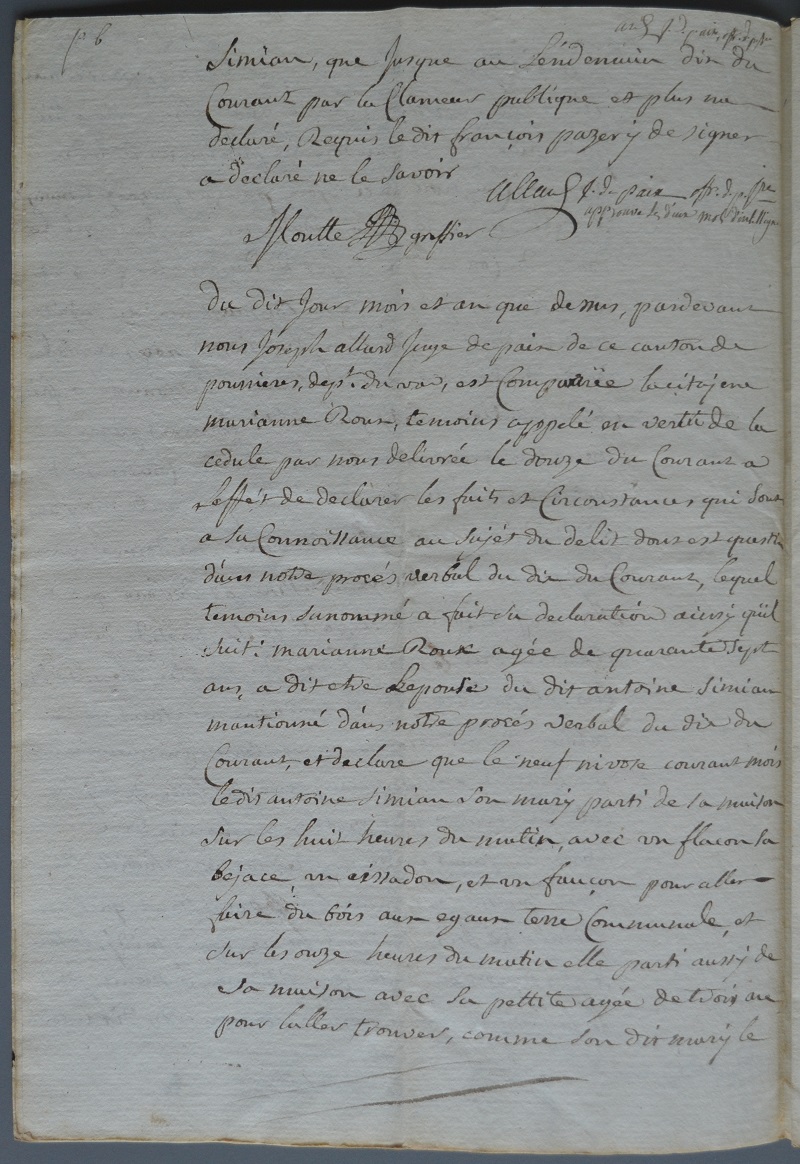 f° 6
Simian, que jusque au Lendemain dix du
Courant par la Clameur publique et plus na
declaré, Requis ledit françois pazery de signer
a declaré ne le Savoir
Allard j. de paix off. d. p. jre
approuve
Moutte greffier
Du dit Jour mois et an que dessus, pardevant
nous Joseph allard Juge de paix de ce canton de
pourrieres, dept. du var, est Comparuë la citojene
marianne Roux, temoins appelé en vertu de la
cedule par nous delivrée le douze du Courant a
Leffét de declarer les faits et Circonstances qui Sont
a Sa Connoissance au Sujét du delit dont est question
dans notre procés verbal du dix du Courant, lequel
temoins sunommé a fait Sa declaration ainsy qüil
Suit: marianne Roux agée de quarante Sept
ans, a dit etre Lepouse du dit antoine Simian
mantionné dans notre procés verbal du dix du
Courant, et declare que le neuf nivose courant mois
ledit antoine Simian Son mary parti de sa maison
Sur les huit heures du matin, avec un flacon Sa
bejace un eissadon, et un fauçon pour aller
faire du bois aux egaux terre Communale, et
Sur les onze heures du matin elle parti aussy de
Sa maison avec Sa pettite agée de trois an
pour laller trouver, comme Son dit mary le